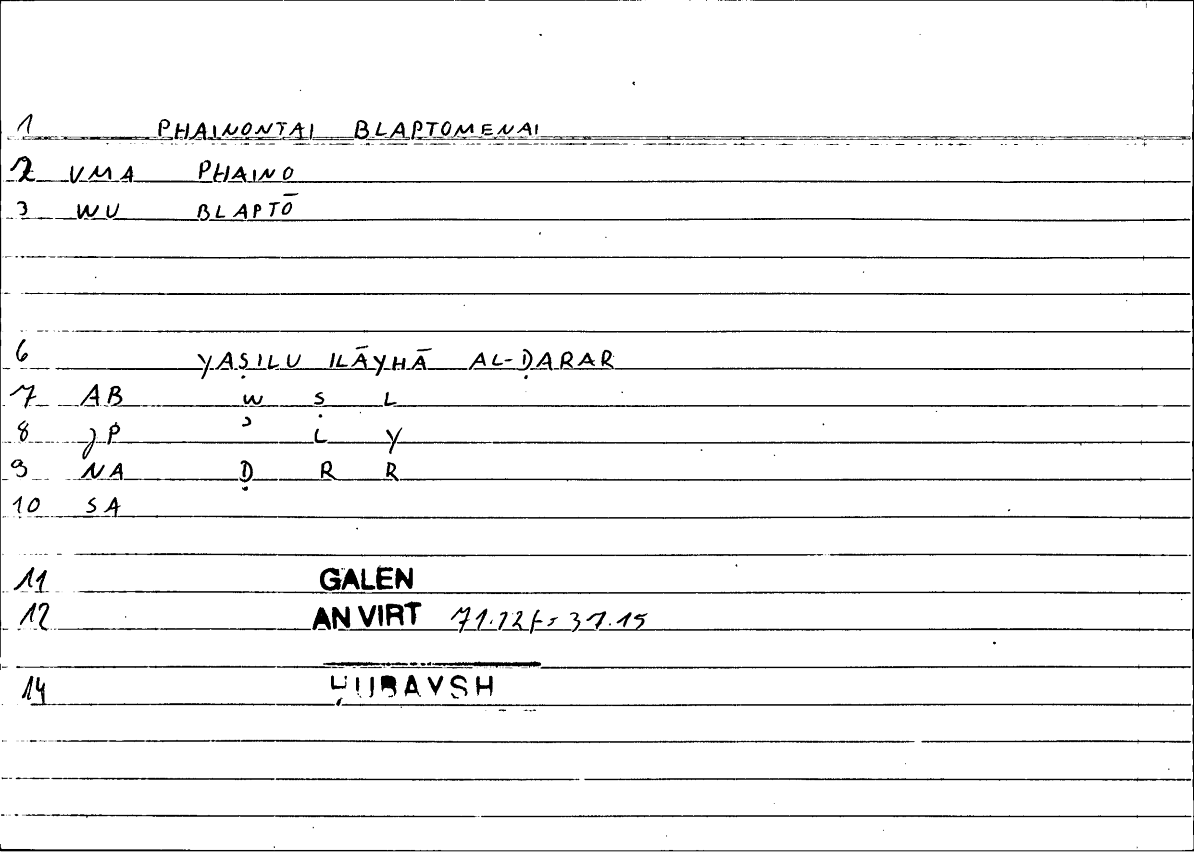 1 PHAINONTAI BLAPTOMENAI
2 VMA PHAINO
3 WU BLAPTŌ
6 YAṢILU ILĀYHĀ AL-ḌARAR
7 AB W Ṣ L
8 JP ʾ L Y
9 NA Ḍ R R
10 SA
11 GALEN
12 AN VIRT 71.12f = 31.15
14 ḤUBAYSH